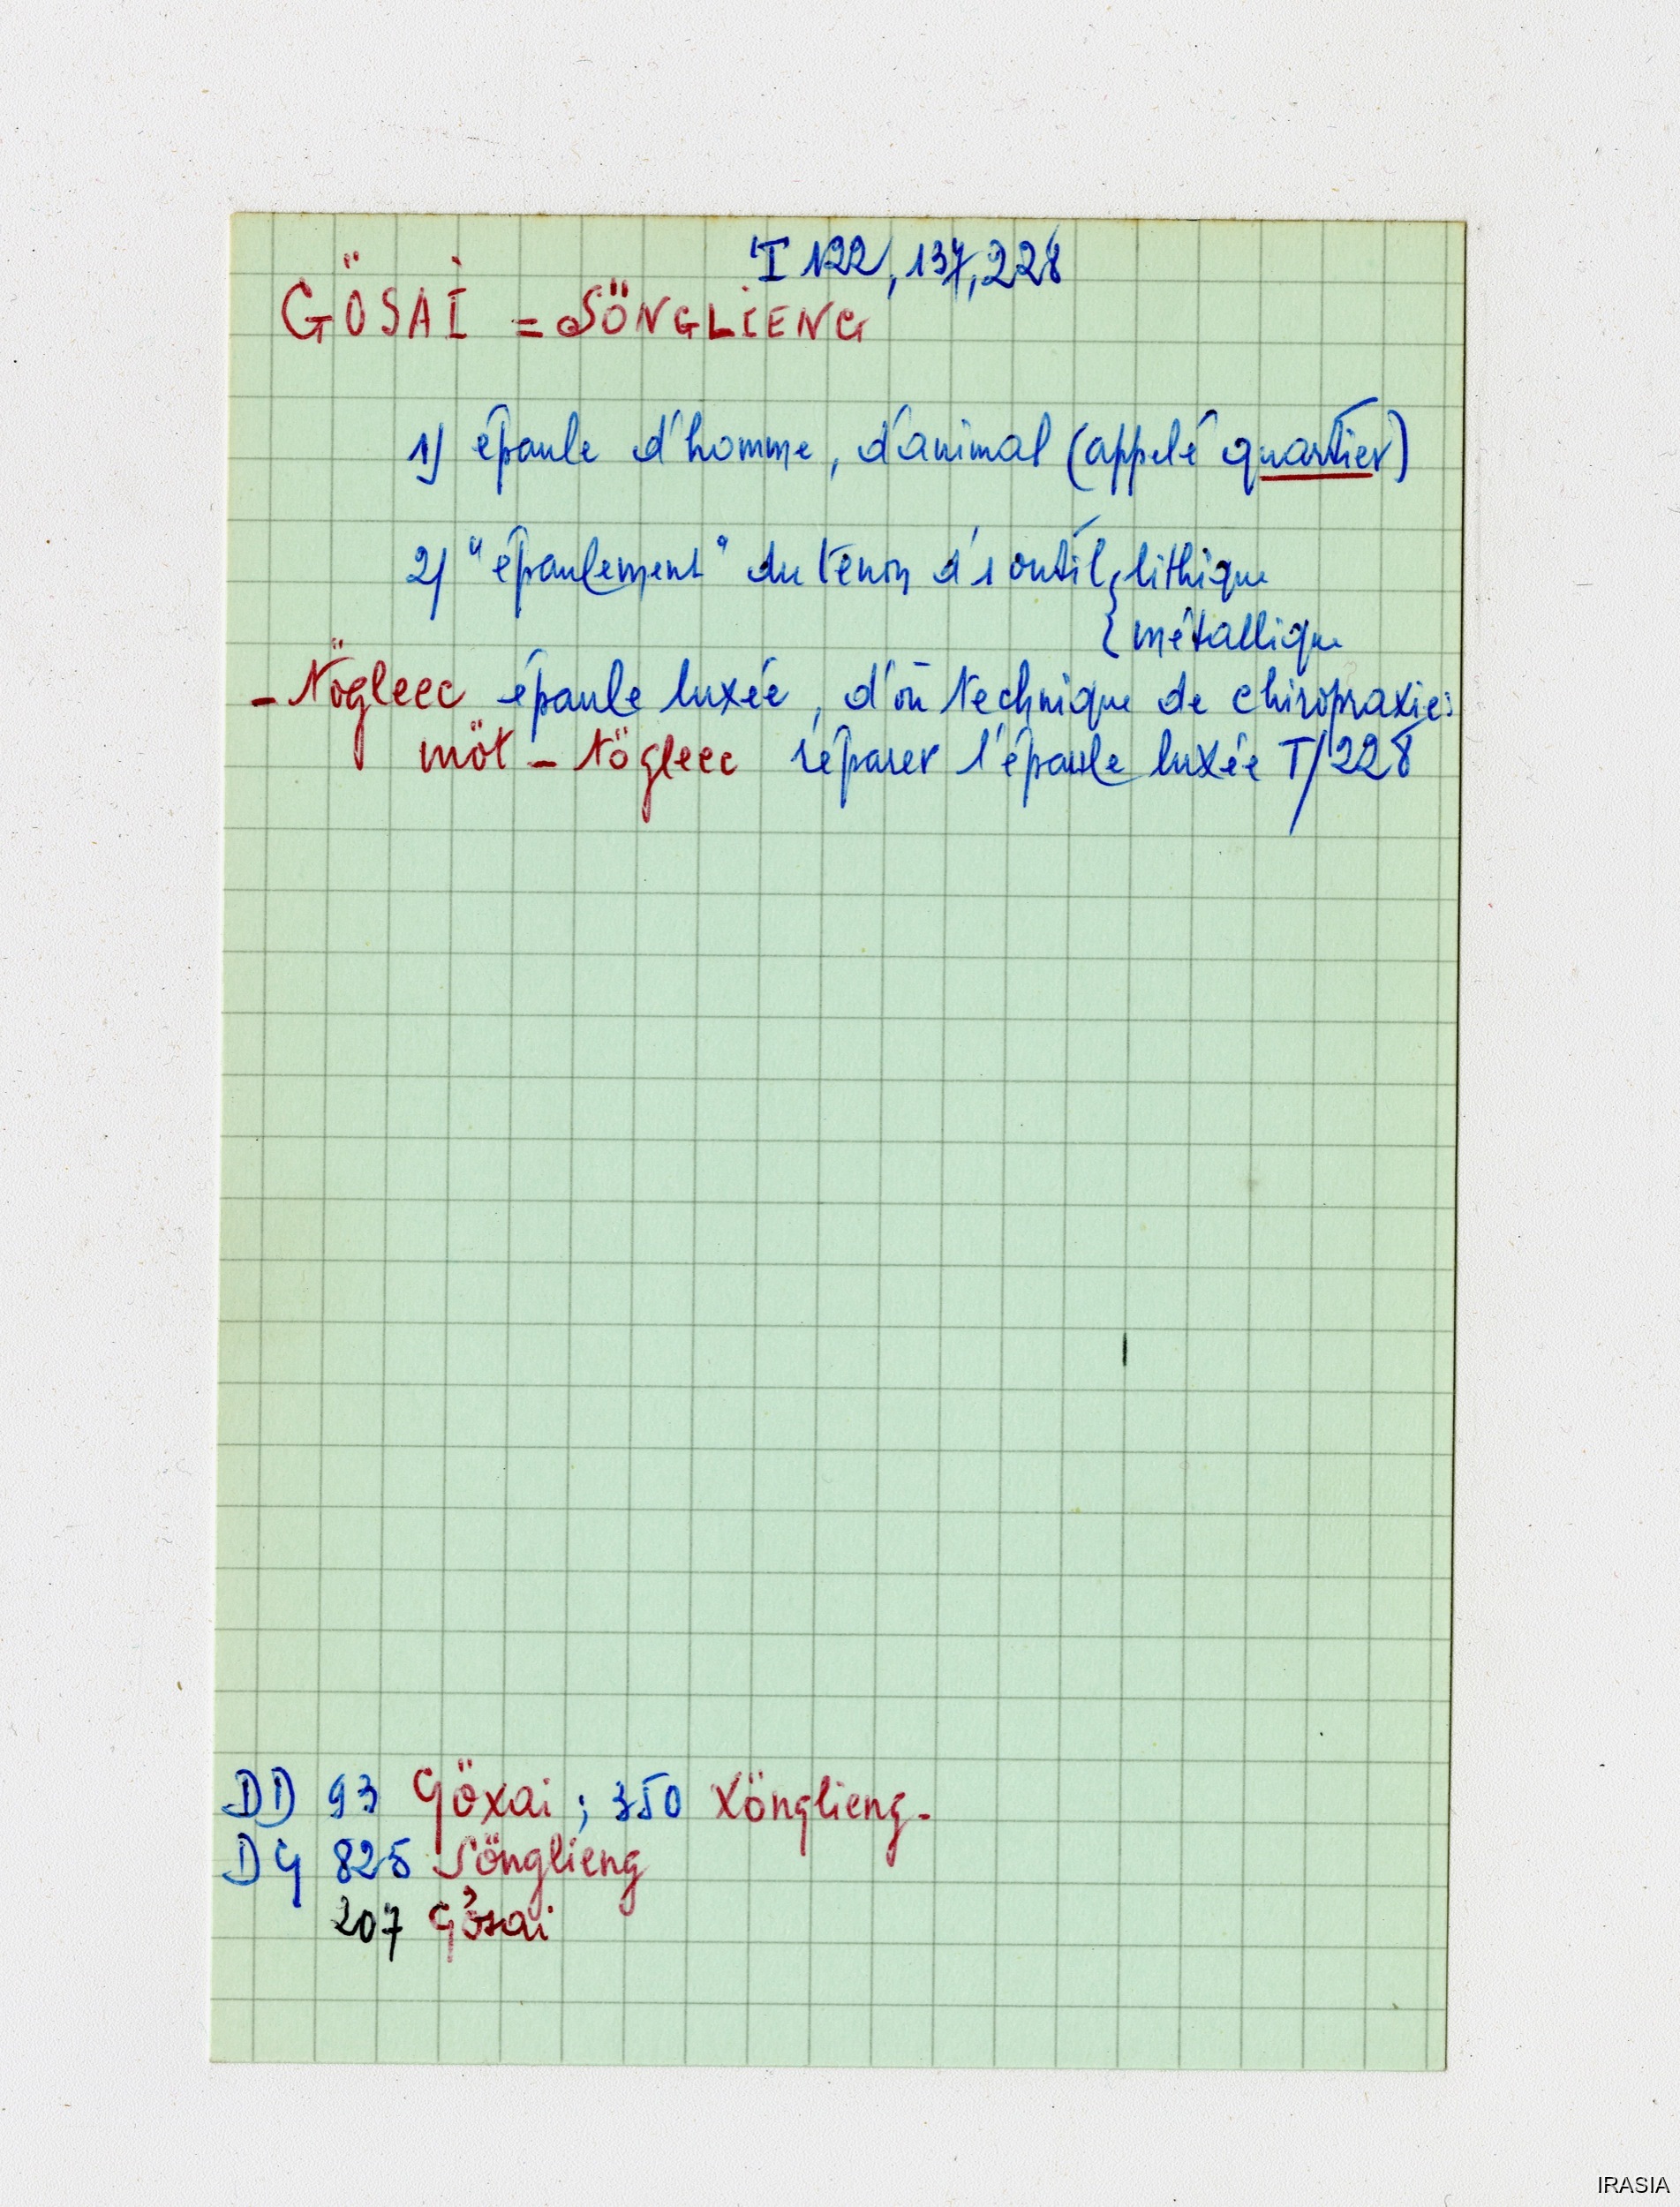 T 122, 137, 228
GÖSAI = SÖNGLIENG
1) épaule d'homme, d'animal (appelé quartier)
2) "épaulement" du tenon d'1 outil { lithique
{ métallique
- tögleec épaule luxée, d'où technique de chiropraxie:
möt - tögleec réparer l'épaule luxée T/228
DD 93 Göxai ; 350 Xönglieng.
DG 825 Sönglieng
207 Gösai
IRASIA